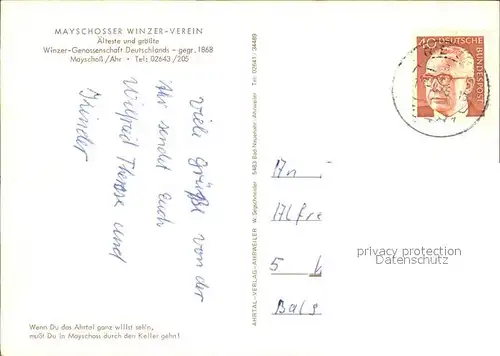 MAYSCHOSSER WINZER-VEREIN
Älteste und größte
Winzer-Genossenschaft Deutschlands - gegr. 1868
Mayschoß/Ahr • Tel: 02643/205
Viele Grüße von der
Ahr sendet Euch
Wilfried Therese und
Kinder
Wenn Du das Ahrtal ganz willst seh'n,
mußt Du in Mayschoss durch den Keller gehn!
AHRTAL-VERLAG-AHRWEILER W. Segschneider 5483 Bad Neuenahr-Ahrweiler Tel. 02641/34489
40 DEUTSCHE
BUNDESPOST
An
Alfre
5
Bals
privacy protection
veikkos.com